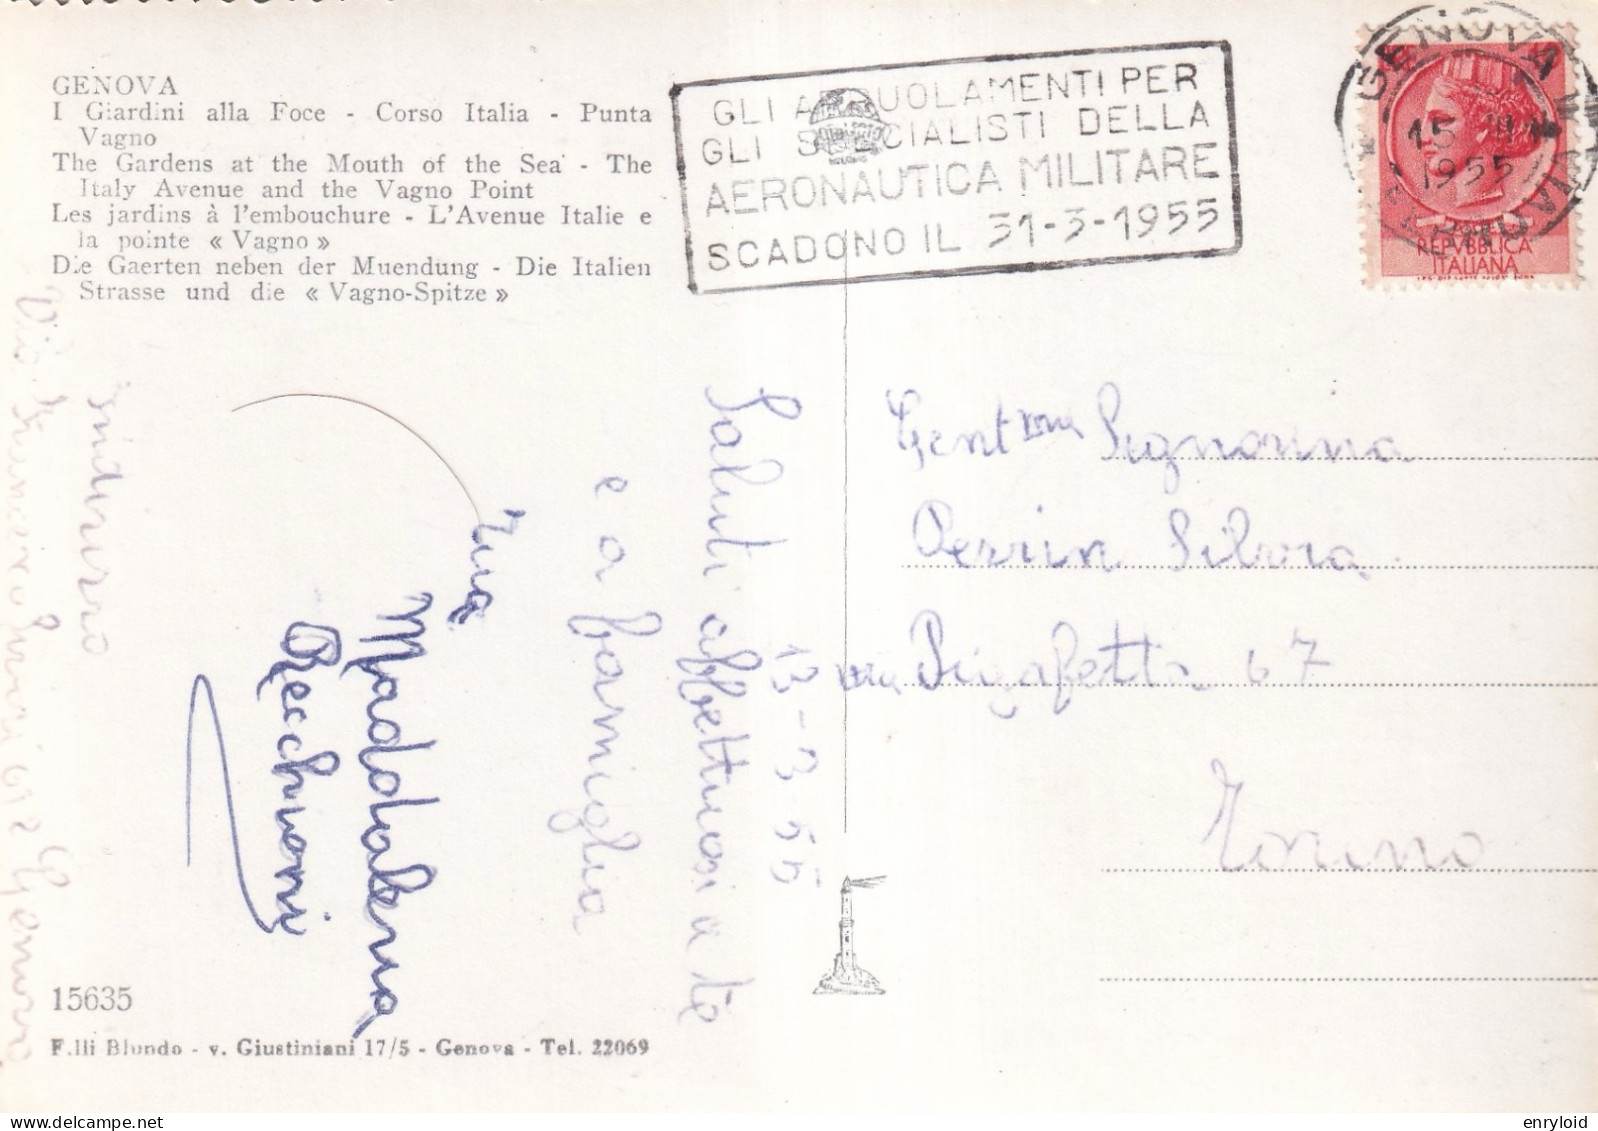 GENOVA
I Giardini alla Foce - Corso Italia - Punta
Vagno
The Gardens at the Mouth of the Sea - The
Italy Avenue and the Vagno Point
Les jardins à l'embouchure - L'Avenue Italie e
la pointe « Vagno »
Die Gaerten neben der Muendung - Die Italien
Strasse und die « Vagno-Spitze »
GLI ARRUOLAMENTI PER
GLI SPECIALISTI DELLA
AERONAUTICA MILITARE
SCADONO IL 31-3-1955
GENOVA
15
1955
REPVBBLICA
ITALIANA
13-3-55
Saluti affettuosi a te
e a famiglia
tua
Maddalena
Recchioni
indirizzo
Via
Genova
Gent.ma Signorina
Perrin Silvia
via Pigafetta 67
Torino
15635
F.lli Blundo - v. Giustiniani 17/5 - Genova - Tel. 22069
enryloid
delcampe.net